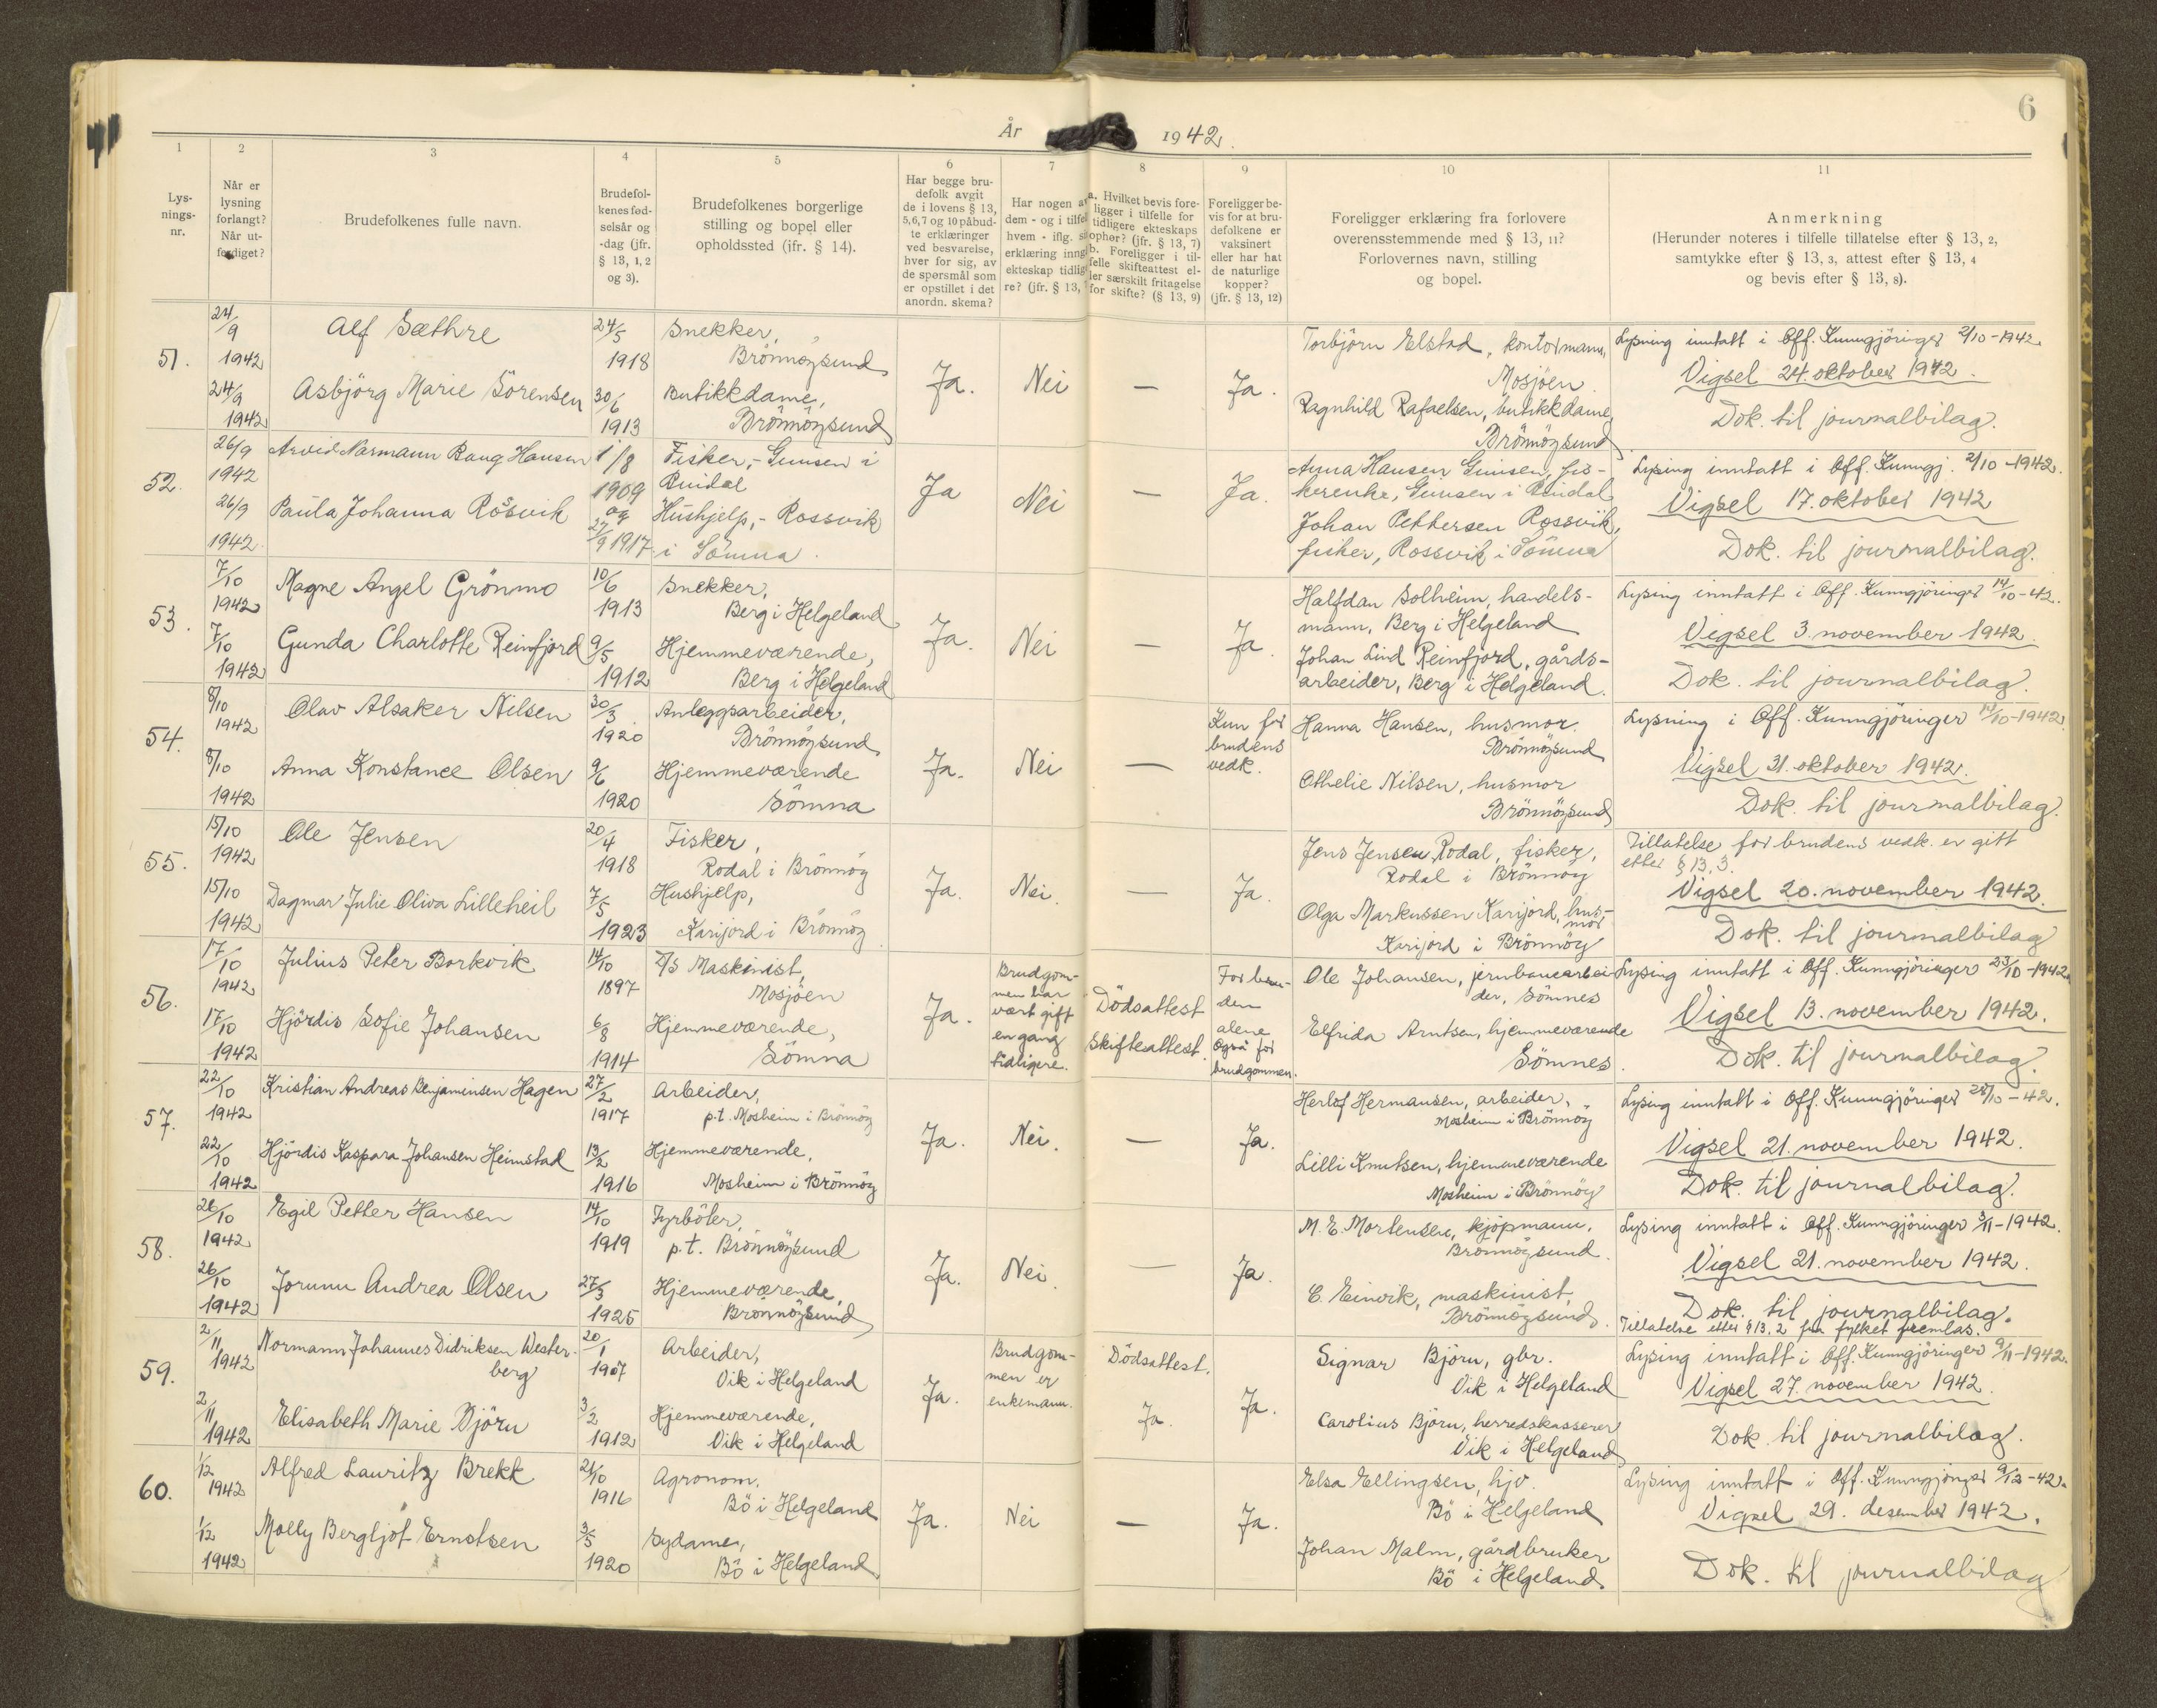 6
År 1942.
1 2 3 4 5 6 7 8 9 10 11
Lys-
nings-
nr.
Når er
lysning
forlangt?
Når ut-
ferdiget?
Brudefolkenes fulle navn.
Brudefol-
kenes fød-
selsår og
-dag (jfr.
§ 13, 1, 2
og 3).
Brudefolkenes borgerlige
stilling og bopel eller
opholdssted (ifr. § 14).
Har begge bru-
defolk avgit
de i lovens § 13,
5, 6, 7 og 10 påbud-
te erklæringer
ved besvarelse,
hver for sig, av
de spørsmål som
er opstillet i det
anordn. skema?
Har nogen a
dem - og i tilfe
hvem - iflg. s
erklæring inng
ekteskap tidlig
re? (jfr. § 13,
a. Hvilket bevis fore-
ligger i tilfelle for
tidligere ekteskaps
ophør? (jfr. § 13, 7)
b. Foreligger i til-
felle skifteattest el-
ler særskilt fritagelse
for skifte? (§ 13, 9)
Foreligger be-
vis for at bru-
defolkene er
vaksinert
eller har hat
de naturlige
kopper?
(jfr. § 13, 12)
Foreligger erklæring fra forlovere
overensstemmende med § 13, 11?
Forlovernes navn, stilling
og bopel.
Anmerkning
(Herunder noteres i tilfelle tillatelse efter § 13, 2,
samtykke efter § 13, 3, attest efter § 13, 4
og bevis efter § 13, 8).
51.
24/9
1942
24/9
1942
Alf Sæthre
Asbjörg Marie Sörensen
24/5
1918
30/6
1913
Snekker,
Brönnöysund
Butikkdame,
Brönnöysund
Ja.
Nei
—
Ja.
Torbjörn Elstad, kontormann,
Mosjöen.
Ragnhild Rafaelsen, butikkdame
Brönnöysund
Lysning inntatt i Off. Kunngjöringer 2/10-1942.
Vigsel 24. oktober 1942.
Dok. til journalbilag.
52.
26/9
1942
26/9
1942.
Arvid Normann Baug Hansen
Paula Johanna Rösvik
1/8
1909
og
27/9 1917
Fisker, -
i
Rindal
Hushjelp, - Rossvik
i Sömna.
Ja
Nei
—
Ja.
Anna Hansen
fis-
kerenke,
i Rindal
Johan Pettersen Rossvik,
fisker, Rossvik i Sömna
Lysing inntatt i Off. Kunngj. 2/10-1942.
Vigsel 17. oktober 1942
Dok. til journalbilag.
53.
7/10
1942
7/10
1942
Magne Angel Grönmo
Gunda Charlotte Reinfjord
10/6
1913
9/5
1912
Snekker,
Berg i Helgeland
Hjemmeværende,
Berg i Helgeland
Ja.
Nei
—
Ja.
Halfdan Solheim, handels-
mann, Berg i Helgeland
Johan Lind Reinfjord, gårds-
arbeider, Berg i Helgeland.
Lysing inntatt i Off. Kunngjöringer 14/10-42.
Vigsel 3. november 1942.
Dok. til journalbilag.
54.
8/10
1942
8/10
1942
Olav Alsaker Nilsen
Anna Konstance Olsen
30/3
1920
9/6
1920
Anleggsarbeider,
Brönnöysund
Hjemmeværende
Sömna
Ja.
Nei
—
Kun for
brudens
vedk.
Hanna Hansen, husmor.
Brönnöysund
Othelie Nilsen, husmor
Brönnöysund
Lysning i Off. Kunngjöringer 14/10-1942
Vigsel 31. oktober 1942.
Dok. til journalbilag.
55.
15/10
1942
15/10
1942
Ole Jensen
Dagmar Julie Oliva Lilleheil
20/4
1918
7/5
1923
Fisker,
Rodal i Brönnöy
Hushjelp,
Karijord i Brönnöy
Ja.
Nei.
—
Ja.
Jens Jensen Rodal, fisker,
Rodal i Brönnöy
Olga Markussen Karijord, hus-
mor
Karijord i Brönnöy
Tillatelse for brudens vedk. er gitt
etter § 13, 3.
Vigsel 20. november 1942.
Dok. til journalbilag
56.
17/10
1942
17/10
1942
Julius Peter Borkvik
Hjördis Sofie Johansen
14/10
1897
6/8
1914
Maskinist,
Mosjöen
Hjemmeværende,
Sömna
Ja.
Brudgom-
men har
vært gift
en gang
tidligere.
Dödsattest
Skifteattest.
For bru-
den
alene
Også for
brudgommen.
Ole Johansen, jernbanearbei-
der, Sömnes
Elfrida Arntsen, hjemmeværende
Sömnes.
Lysing inntatt i Off. Kunngjöringer 23/10-1942
Vigsel 13. november 1942.
Dok. til journalbilag.
57.
22/10
1942
22/10
1942
Kristian Andreas Benjaminsen Hagen
Hjördis Kaspara Johansen Heimstad
27/2
1917
13/2
1916
Arbeider,
p.t. Mosheim i Brönnöy
Hjemmeværende,
Mosheim i Brönnöy
Ja.
Nei.
—
Ja.
Herlof Hermansen, arbeider,
Mosheim i Brönnöy
Lilli Knutsen, hjemmeværende
Mosheim i Brönnöy
Lysing inntatt i Off. Kunngjöringer 28/10-42.
Vigsel 21. november 1942.
Dok. til journalbilag.
58.
26/10
1942
26/10
1942
Egil Petter Hansen
Jorunn Andrea Olsen
14/10
1919
27/3
1925
Fyrböter,
p.t. Brönnöysund
Hjemmeværende,
Brönnöysund
Ja.
Nei.
—
Ja.
M. E. Mortensen, kjöpmann,
Brönnöysund.
C. Einvik, maskinist,
Brönnöysund.
Lysing inntatt i Off. Kunngjöringer 3/11-1942.
Vigsel 21. november 1942.
Dok. til journalbilag.
Tillatelse etter § 13, 2 fra fylket fremlas.
59.
2/11
1942
2/11
1942
Normann Johannes Didriksen Wester-
berg
Elisabeth Marie Björu
20/1
1907
3/2
1912
Arbeider,
Vik i Helgeland
Hjemmeværende,
Vik i Helgeland
Ja.
Brudgom-
men er
enkemann.
Dödsattest.
Ja.
Ja.
Signar Björu, gbr.
Vik i Helgeland
Carolius Björu, herredskasserer
Vik i Helgeland
Lysing inntatt i Off. Kunngjöringer 9/11-1942.
Vigsel 27. november 1942.
Dok. til journalbilag.
60.
1/12
1942
1/12
1942
Alfred Lauritz Brekk
Molly Bergljot Ernstsen
21/10
1916
3/5
1920
Agronom,
Bö i Helgeland
Sydame,
Bö i Helgeland
Ja.
Nei
—
Ja.
Elsa Ellingsen, hjv.
Bö i Helgeland
Johan Malm, gårdbruker
Bö i Helgeland
Lysing inntatt i Off. Kunngjöringer 9/12-42.
Vigsel 29. desember 1942.
Dok. til journalbilag